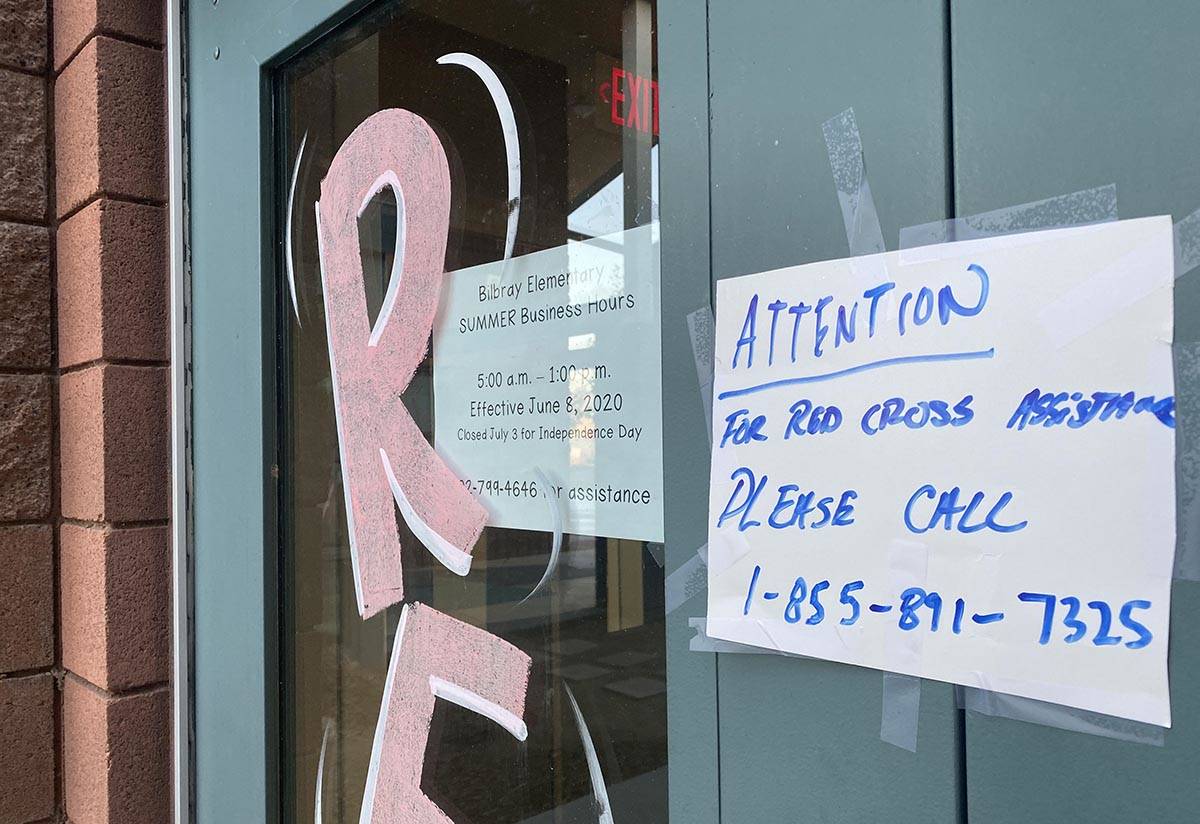 R
E
EXIT
Bilbray Elementary
SUMMER Business Hours
5:00 a.m. – 1:00 p.m.
Effective June 8, 2020
Closed July 3 for Independence Day
2-799-4646 for assistance
ATTENTION
FOR RED CROSS ASSISTANCE
PLEASE CALL
1-855-891-7325